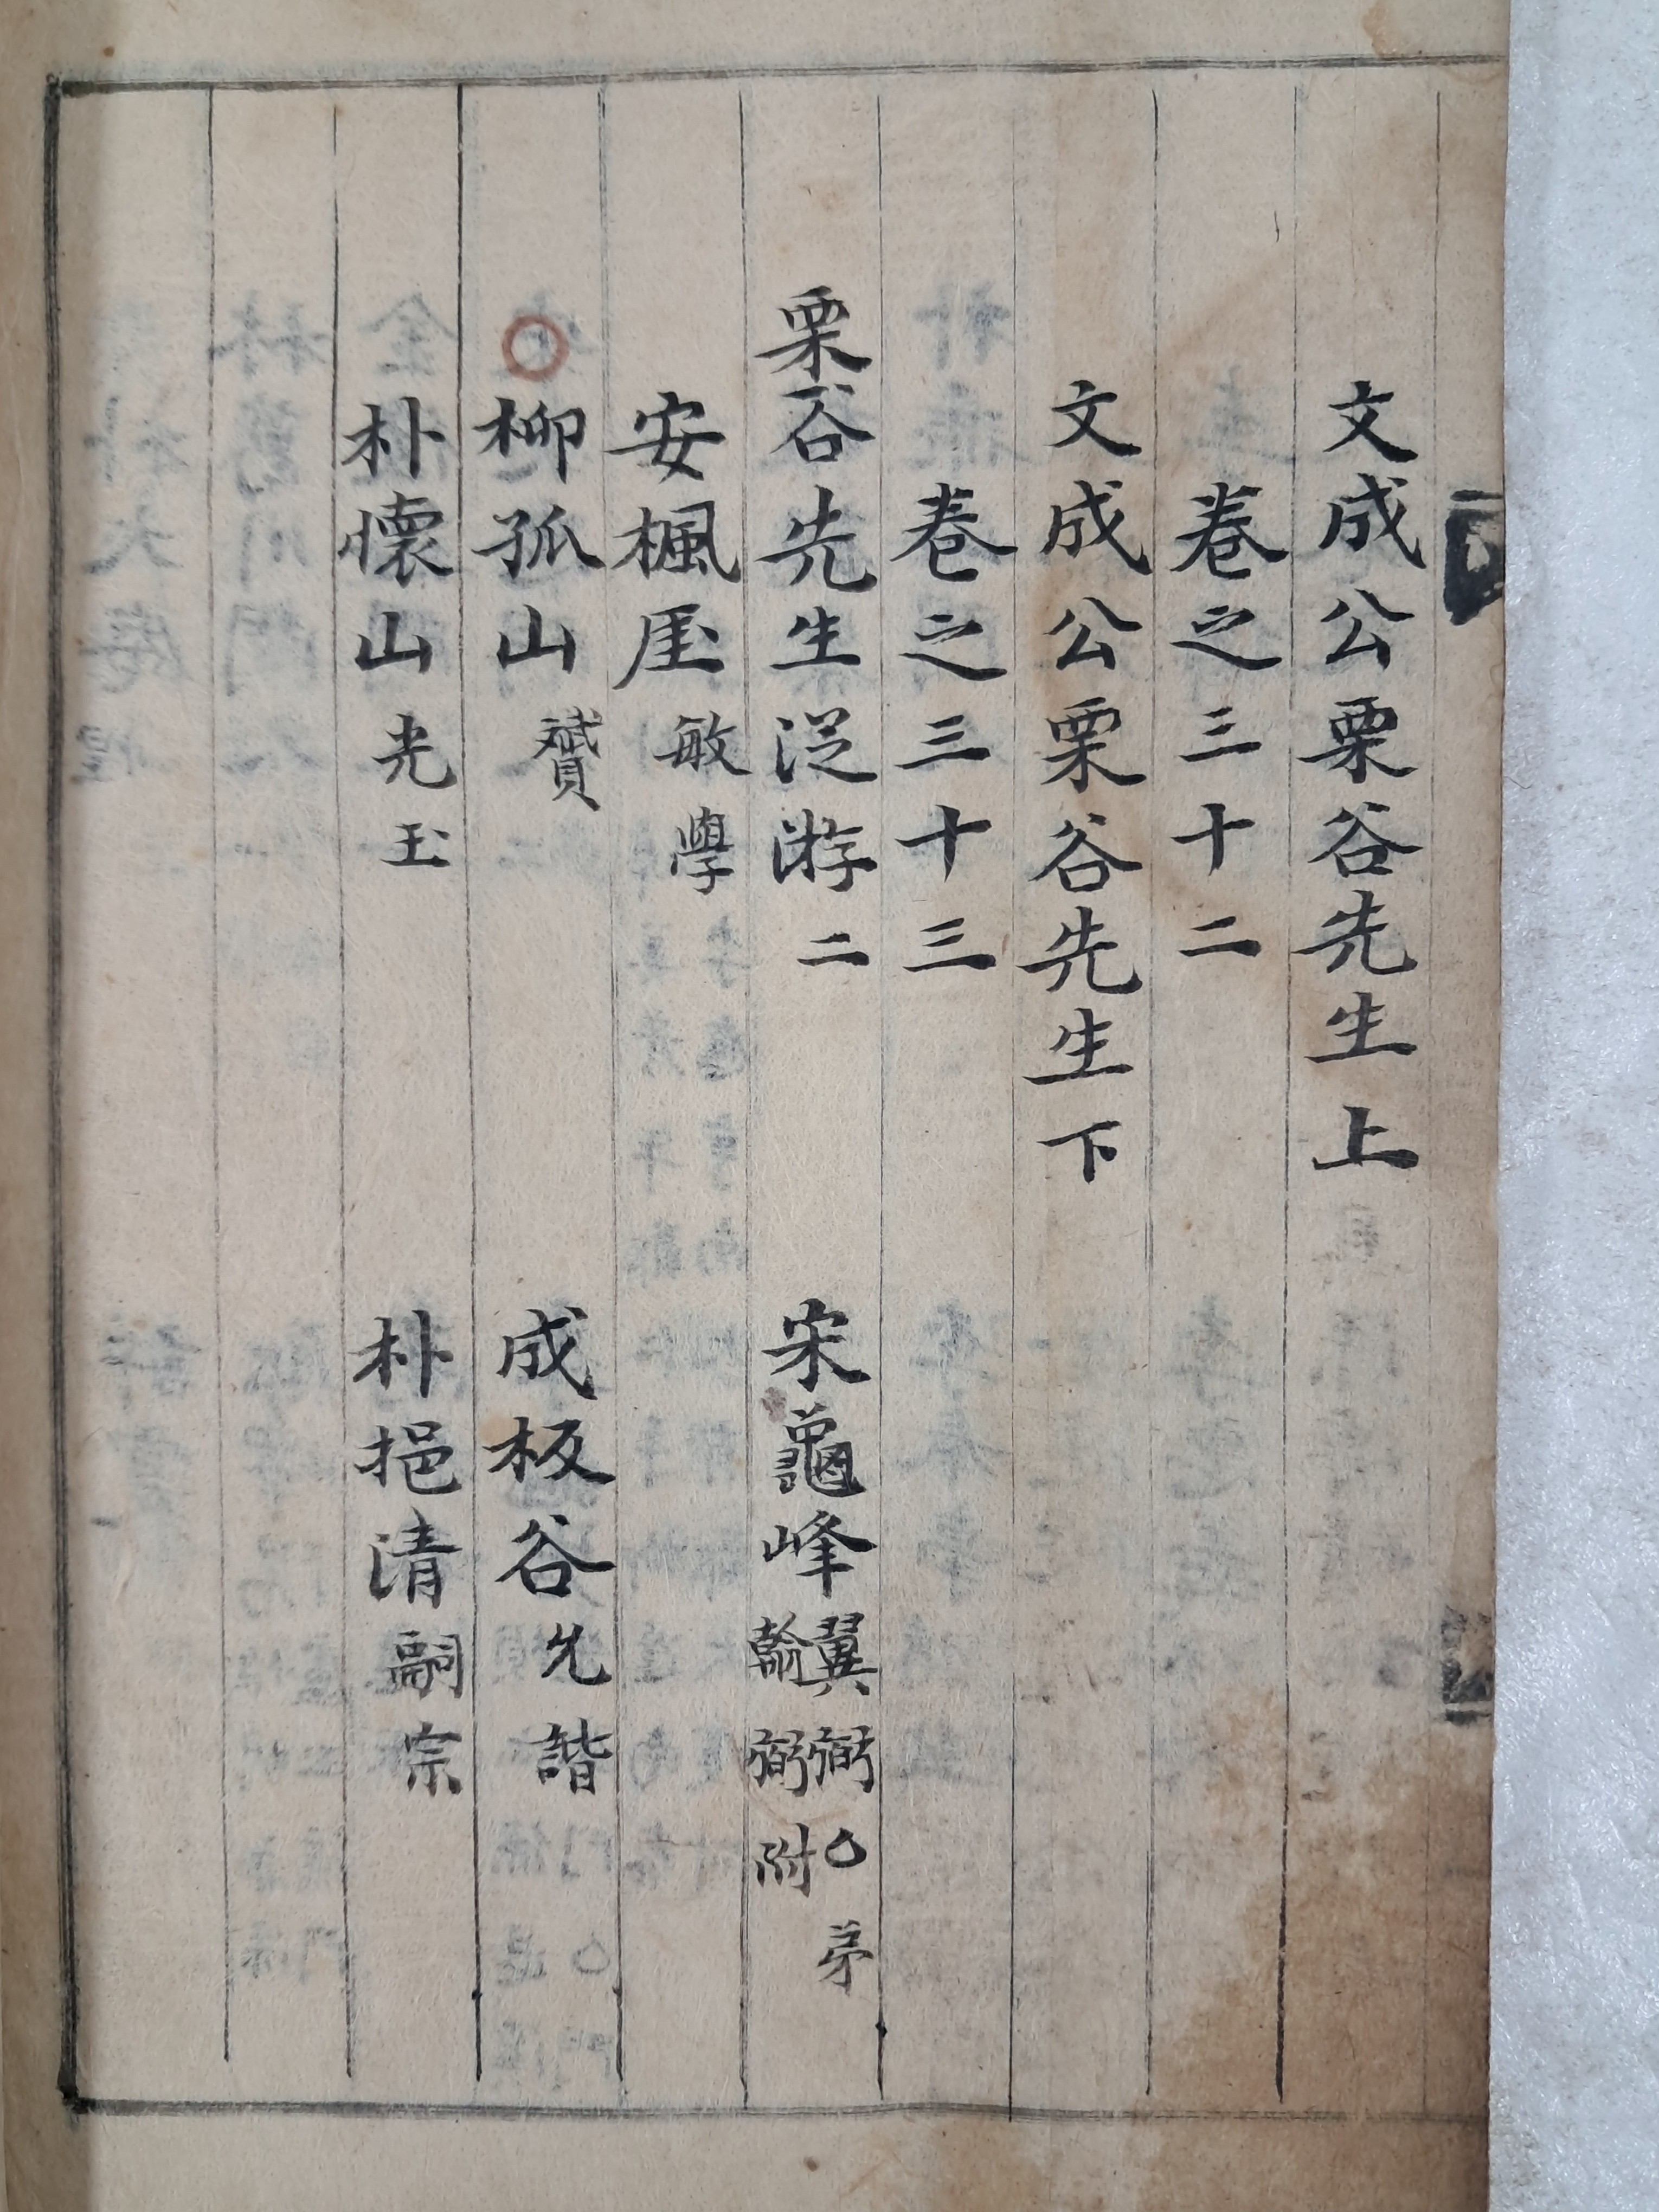 文成公栗谷先生上
卷之三十二
文成公栗谷先生下
卷之三十三
栗谷先生從游二 宋龜峰翼弼〇弟翰弼附
安楓厓敏學
〇柳孤山贇 成板谷允諧
朴懷山光玉 朴挹清嗣宗